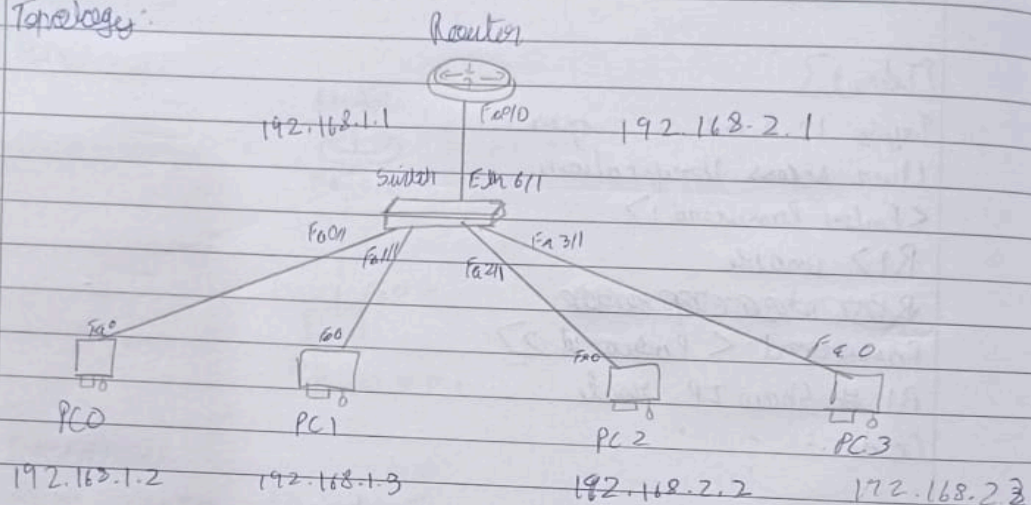 Topology:
Router
192.168.1.1 Fa0/0 192.168.2.1
Switch Eth 6/1
Fa0/1 Fa1/1 Fa2/1 Fa 3/1
Fa0 Fa0 Fa0 Fa 0
PC0 PC1 PC 2 PC 3
192.168.1.2 192.168.1.3 192.168.2.2 192.168.2.3